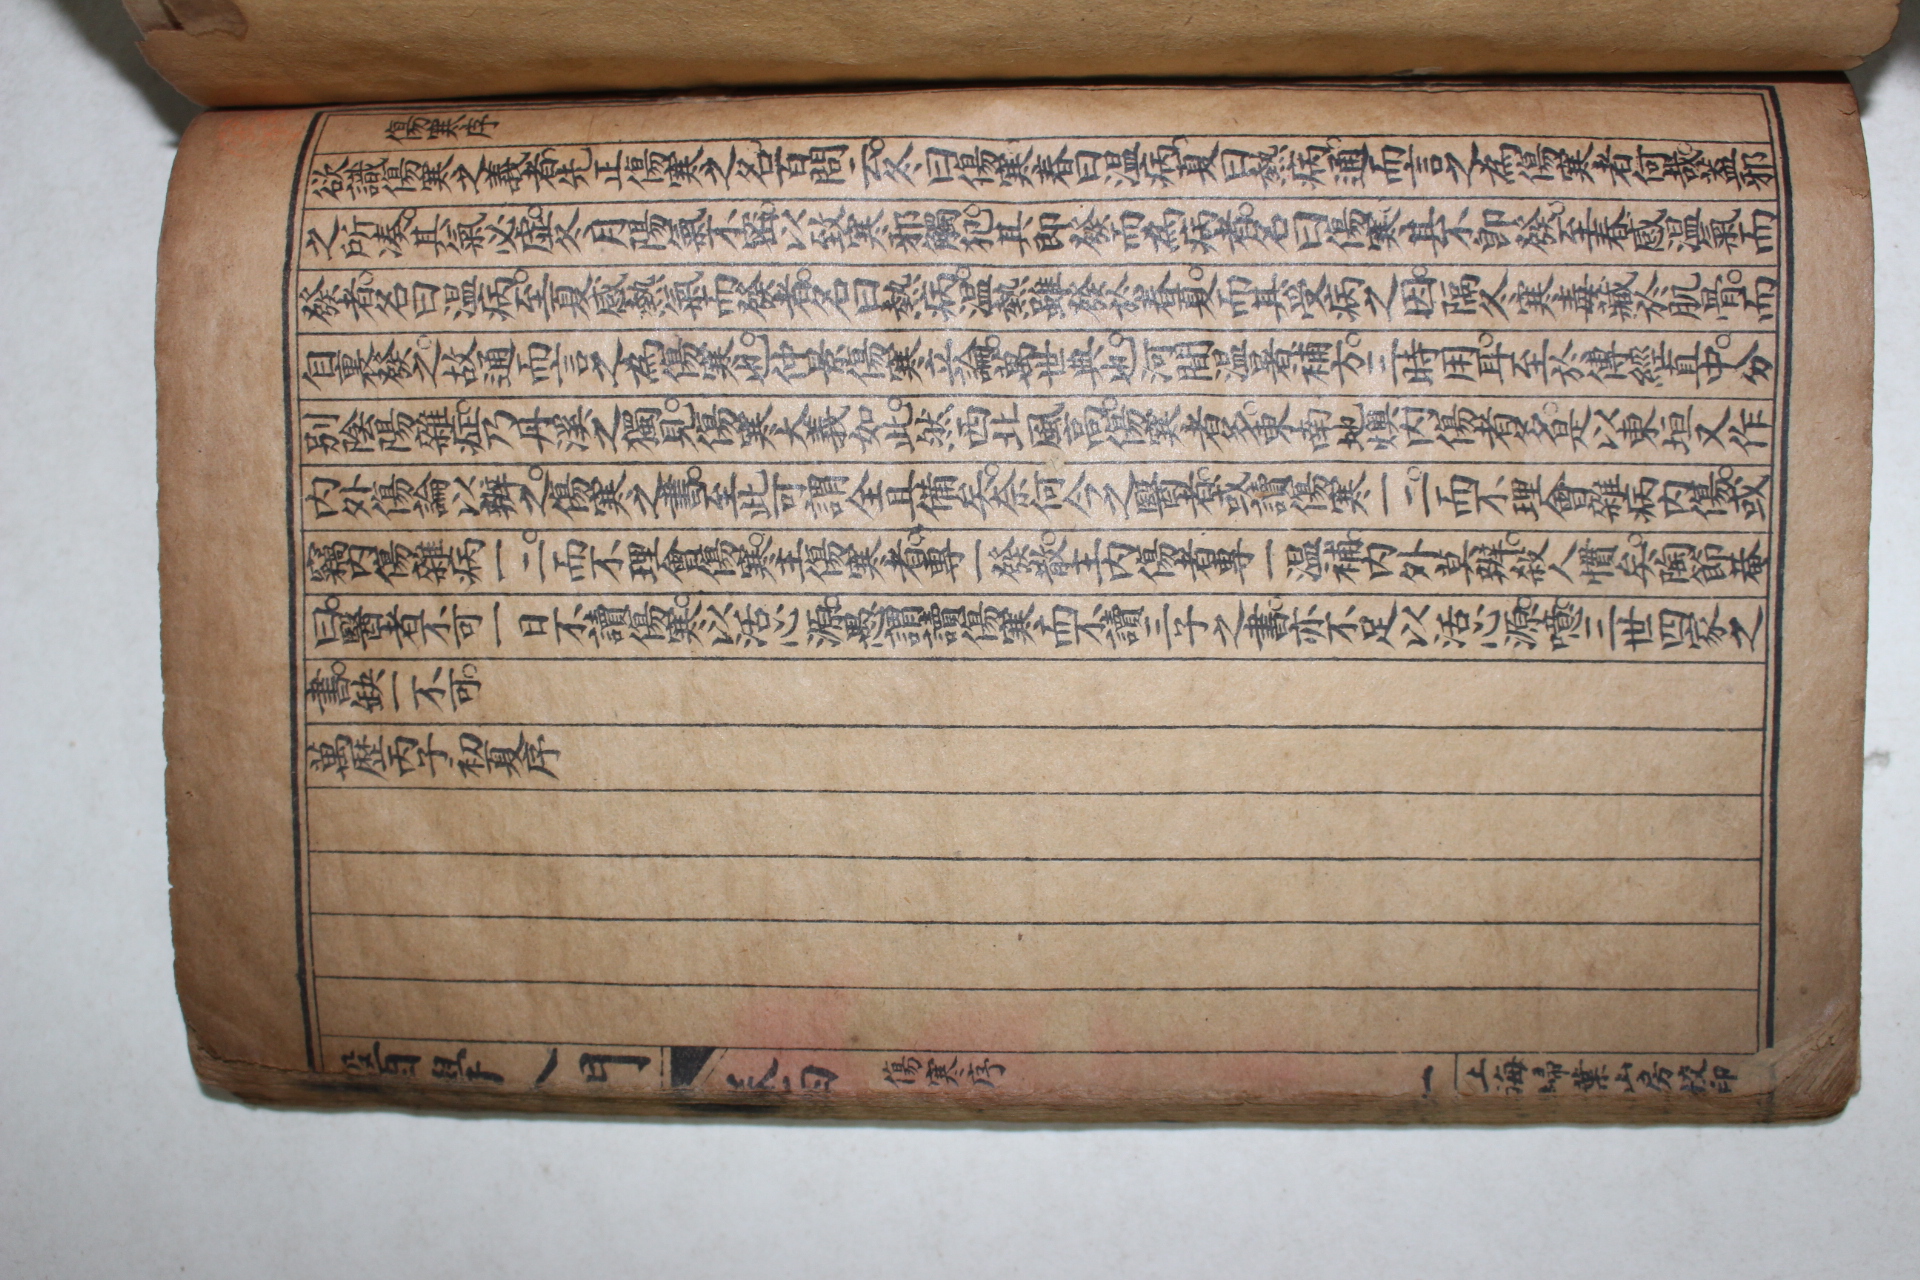 傷寒序
欲識傷寒之義者先正傷寒之名素問云冬曰傷寒春曰溫病夏曰熱病通而言之為傷寒者何哉蓋邪
之所湊其氣必虛冬月陽氣不密以致寒邪觸犯其即發而為病者名曰傷寒其不即發至春感溫氣而
發者名曰溫病至夏感熱氣而發者名曰熱病溫熱雖發於春夏而其受病之因隔冬寒毒藏於肌骨而
自裏發之故通而言之為傷寒也仲景傷寒立論萬世典也河間溫暑補方一時用耳至於傳經直中分
別陰陽雜症乃丹溪之獨見傷寒大義如此然西北風高傷寒者多東南地煖內傷者多是以東垣又作
內外傷論以辨之傷寒之書至此可謂全且備矣奈何今之醫者或讀傷寒一二而不理會雜病內傷或
竊內傷雜病一二而不理會傷寒主傷寒者專一發散主內傷者專一溫補內外莫辨殺人慣矣陶節菴
曰醫者不可一日不讀傷寒以活心源愚謂讀傷寒而不讀三子之書亦不足以活心源噫三世四家之
書缺一不可
萬歷丙子初夏序
傷寒序
一
上海埽葉山房校印